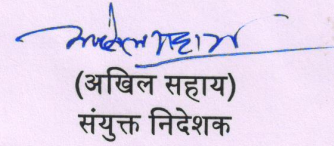 अखिल सहाय
(अखिल सहाय)
संयुक्त निदेशक